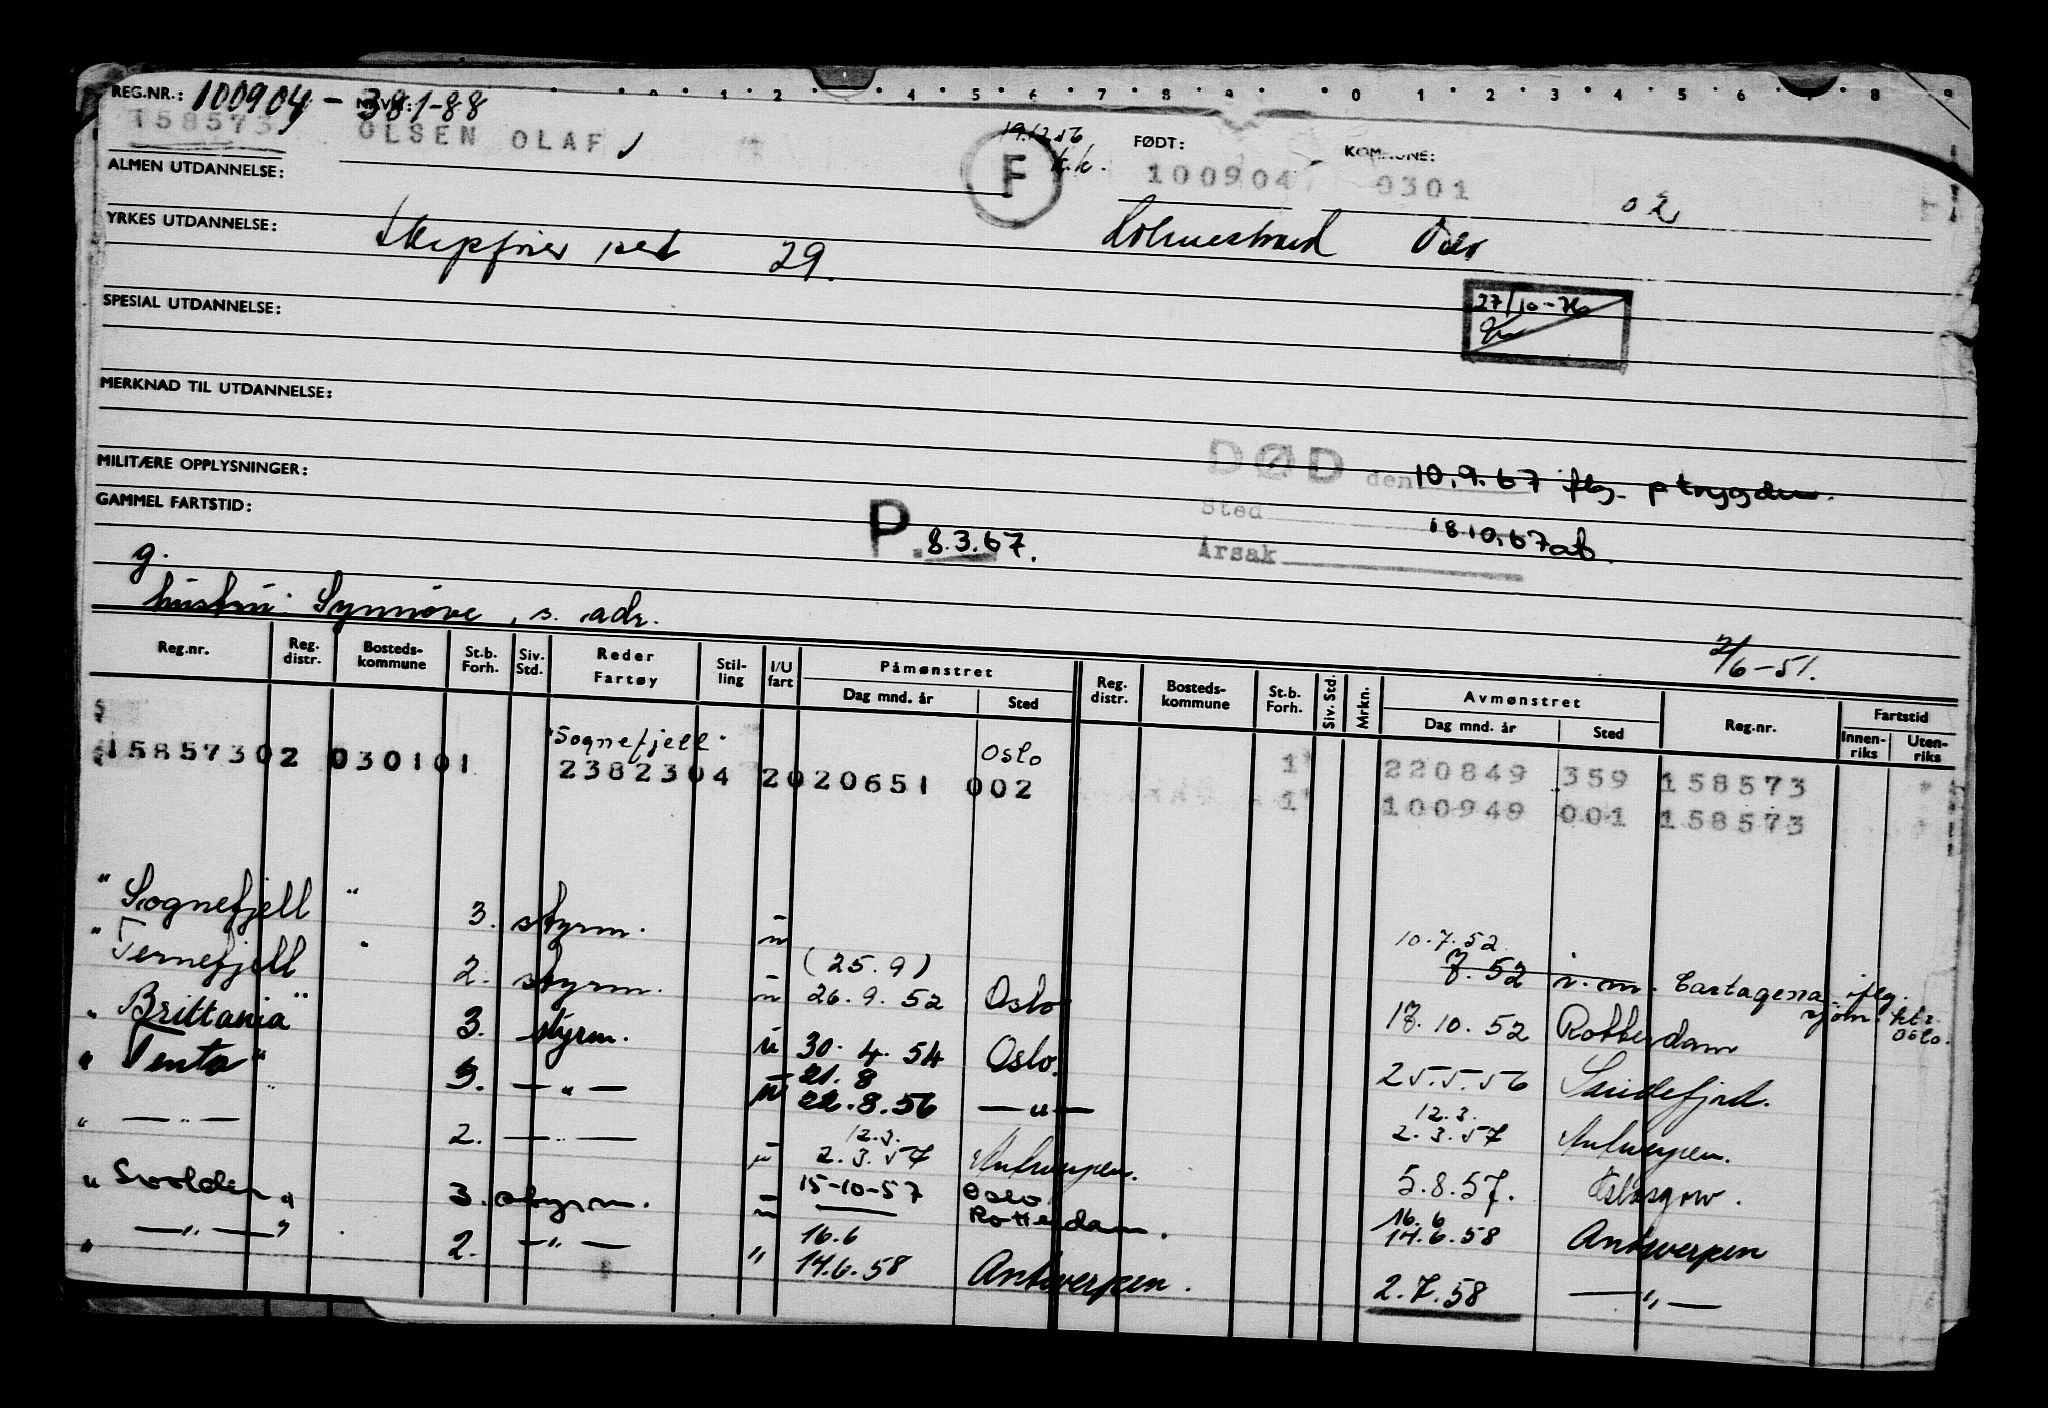 REG.NR.: 100904-38188
158573 OLSEN OLAF
19.12.56
k.k.
F
FØDT: KOMMUNE:
100904 0301
02
ALMEN UTDANNELSE:
YRKES UTDANNELSE: 29. Holmestrand Oslo
27/10-76
SPESIAL UTDANNELSE:
MERKNAD TIL UTDANNELSE:
MILITÆRE OPPLYSNINGER:
DØD den 10.9.67 flg. ptrygden.
Sted
18.10.67 ab.
Årsak
GAMMEL FARTSTID:
P. 8.3.67.
g.
hustru: Synnøve, s. adr.
2/6-51.
Reg.nr. Reg. distr. Bosteds-kommune St.b. Forh. Siv. Std. Reder Fartøy Stil-ling I/U fart Påmønstret Dag mnd. år Sted Reg. distr. Bosteds-kommune St.b. Forh. Siv. Std. Mrkn. Avmønstret Dag mnd. år Sted Reg.nr. Fartstid Innen-riks Uten-riks
"Sognefjell" Oslo
15857302 030101 2382304 2020651 002 1 220849 359 158573
1 100949 001 158573
"Sognefjell" 3. styrm. u 10.7.52
7.52 i.m. Cartagena iflg. sjøm. ktr. Oslo.
"Ternefjell" 2. styrm. u (25.9)
26.9.52 Oslo 17.10.52 Rotterdam
"Brittania" 3. styrm. u 30.4.54 Oslo. 25.5.56 Sandefjord.
"Tento" 3. — " — u 21.8
22.8.56 — " — 12.3.
2.3.57 Antwerpen.
" — " — 2. — " — u 12.3.
2.3.57 Antwerpen. 5.8.57. Glasgow.
"Svolder" 3. styrm. u 15-10-57 Oslo
Rotterdam. 16.6
14.6.58 Antwerpen
" — " — " 2. — " — " 16.6
14.6.58 Antwerpen. 2.7.58 — " —